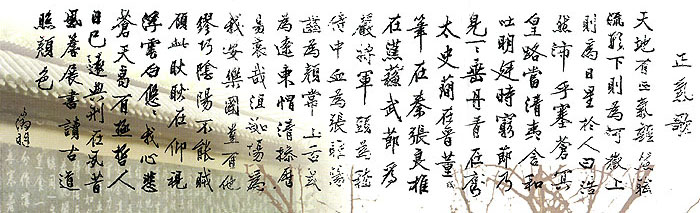 正氣歌
天地有正氣雜然賦
流形下則為河嶽上
則為日星於人曰浩
然沛乎塞蒼冥
皇路當清夷含和
吐明廷時窮節乃
見一一垂丹青在齊
太史簡在晉董
筆在秦張良椎
在漢蘇武節為
嚴將軍頭為嵇
侍中血為張睢陽
齒為顏常山舌或
為遼東帽清操厲
哀哉沮洳場為
我安樂國豈有他
繆巧陰陽不能賊
顧此耿耿在仰視
浮雲白悠我心悲
蒼天曷有極哲人
日已遠典刑在夙昔
風簷展書讀古道
照顏色